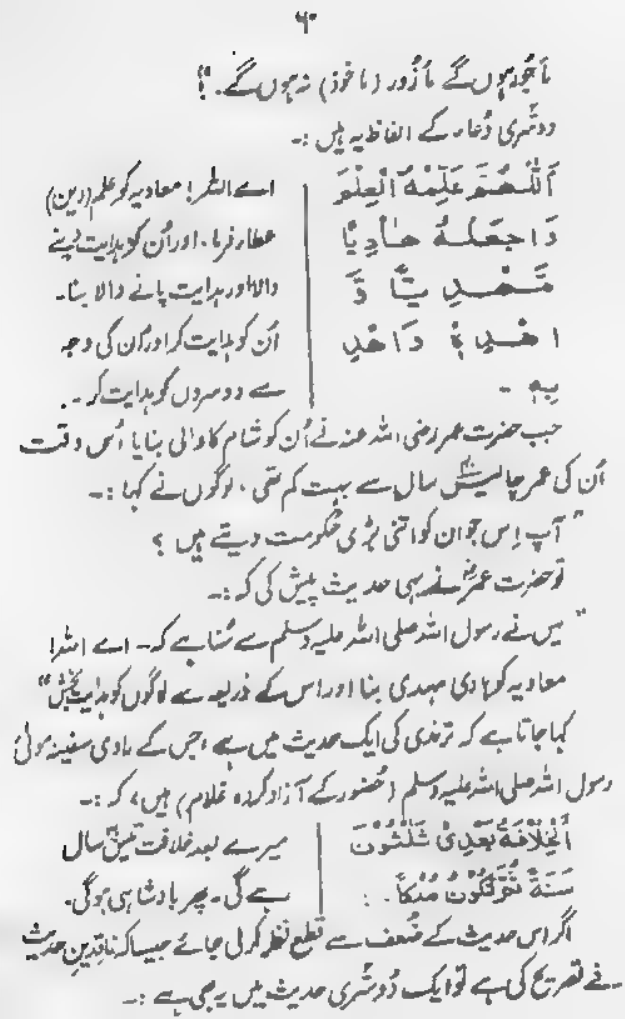 ۶۰
مأجور ہوں گے مأزُور (ماخوذ) نہ ہوں گے۔"؟
دوسٗری دُعاء کے الفاظ یہ ہیں :۔
اَللّٰهُمَّ عَلِّمْهُ الْعِلْمَ
وَاجْعَلْهُ هَادِيًا
مَّهْدِيًّا وَّ
اهْدِهٖ وَاهْدِ
بِهٖ ۔
اے اللہ! معاویہ کو علم (دین)
عطاء فرما۔ اور اُن کو ہدایت دینے
والا اور ہدایت پانے والا بنا۔
اُن کو ہدایت کر اور اُن کی وجہ
سے دوسروں کو ہدایت کر ۔
جب حضرت عمر رضی اللہ عنہ نے اُن کو شام کا والی بنایا اُس وقت
اُن کی عمر چالیس سال سے بہت کم تھی ۔ لوگوں نے کہا :۔
" آپ اِس جوان کو اتنی بڑی حکومت دیتے ہیں ؟
تو حضرت عمرؓ نے یہی حدیث پیش کی کہ :۔
" میں نے رسول اللہ صلی اللہ علیہ وسلم سے سُنا ہے کہ۔ اے اللہ!
معاویہ کو ہادی مہدی بنا اور اس کے ذریعہ سے لوگوں کو ہدایت بخش"
کہا جاتا ہے کہ ترمذی کی ایک حدیث میں ہے (جس کے راوی سفینہ مولیٰ
رسول اللہ صلی اللہ علیہ وسلم (حضور کے آزاد کردہ غلام) ہیں، کہ :۔
اَلْخِلَافَةُ بَعْدِیْ ثَلٰثُوْنَ
سَنَةً ثُمَّ تَكُوْنُ مُلْكًا ۔
میرے بعد خلافت تیس سال
رہے گی۔ پھر بادشاہی ہوگی۔
اگر اس حدیث کے ضُعف سے قطع نظر کر لی جائے جیسا کہ ناقدینِ حدیث
نے تصریح کی ہے تو ایک دُوسٗری حدیث میں یہ بھی ہے :۔